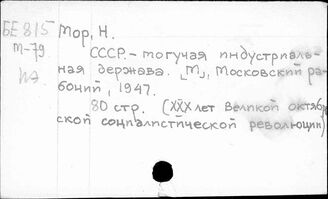 БЕ 815 Мор, Н.
М-79 СССР - могучая индустриаль-
ная держава. [М], Московский ра-
бочий, 1947.
80 стр. (XXX лет Великой октябр
ской социалистической революции)